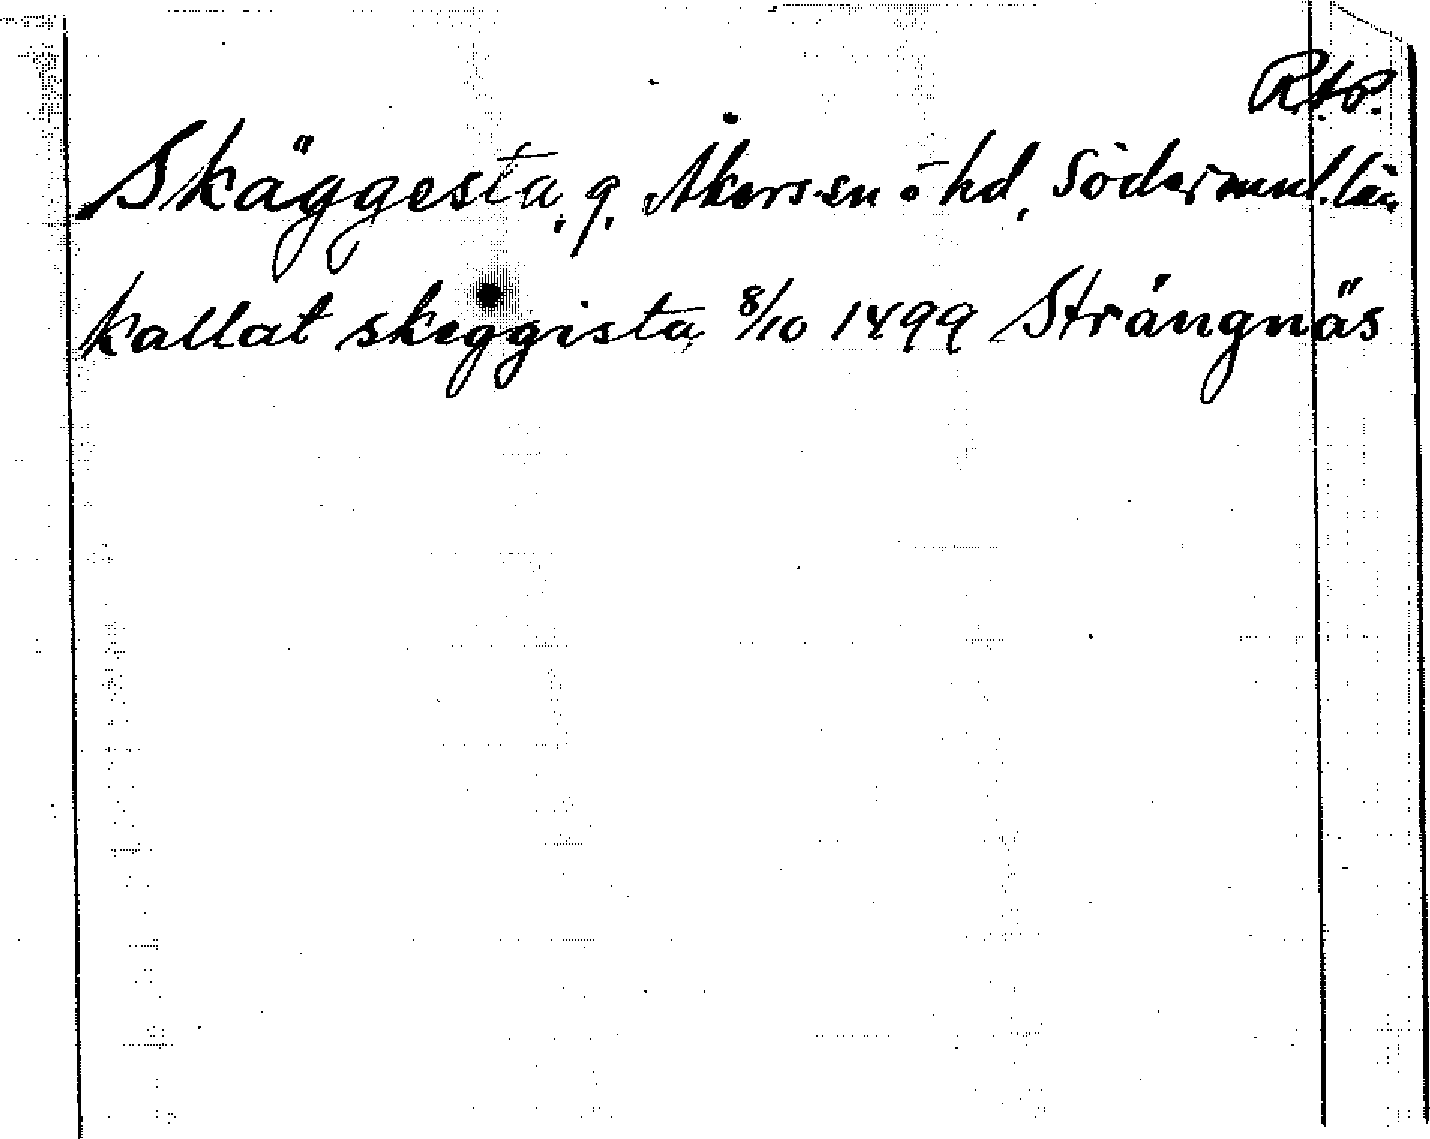 Rtp.
Skäggesta, g. Åkers sn ö hd, Södermanl. län
kallat skeggista 8/10 1499 Strängnäs